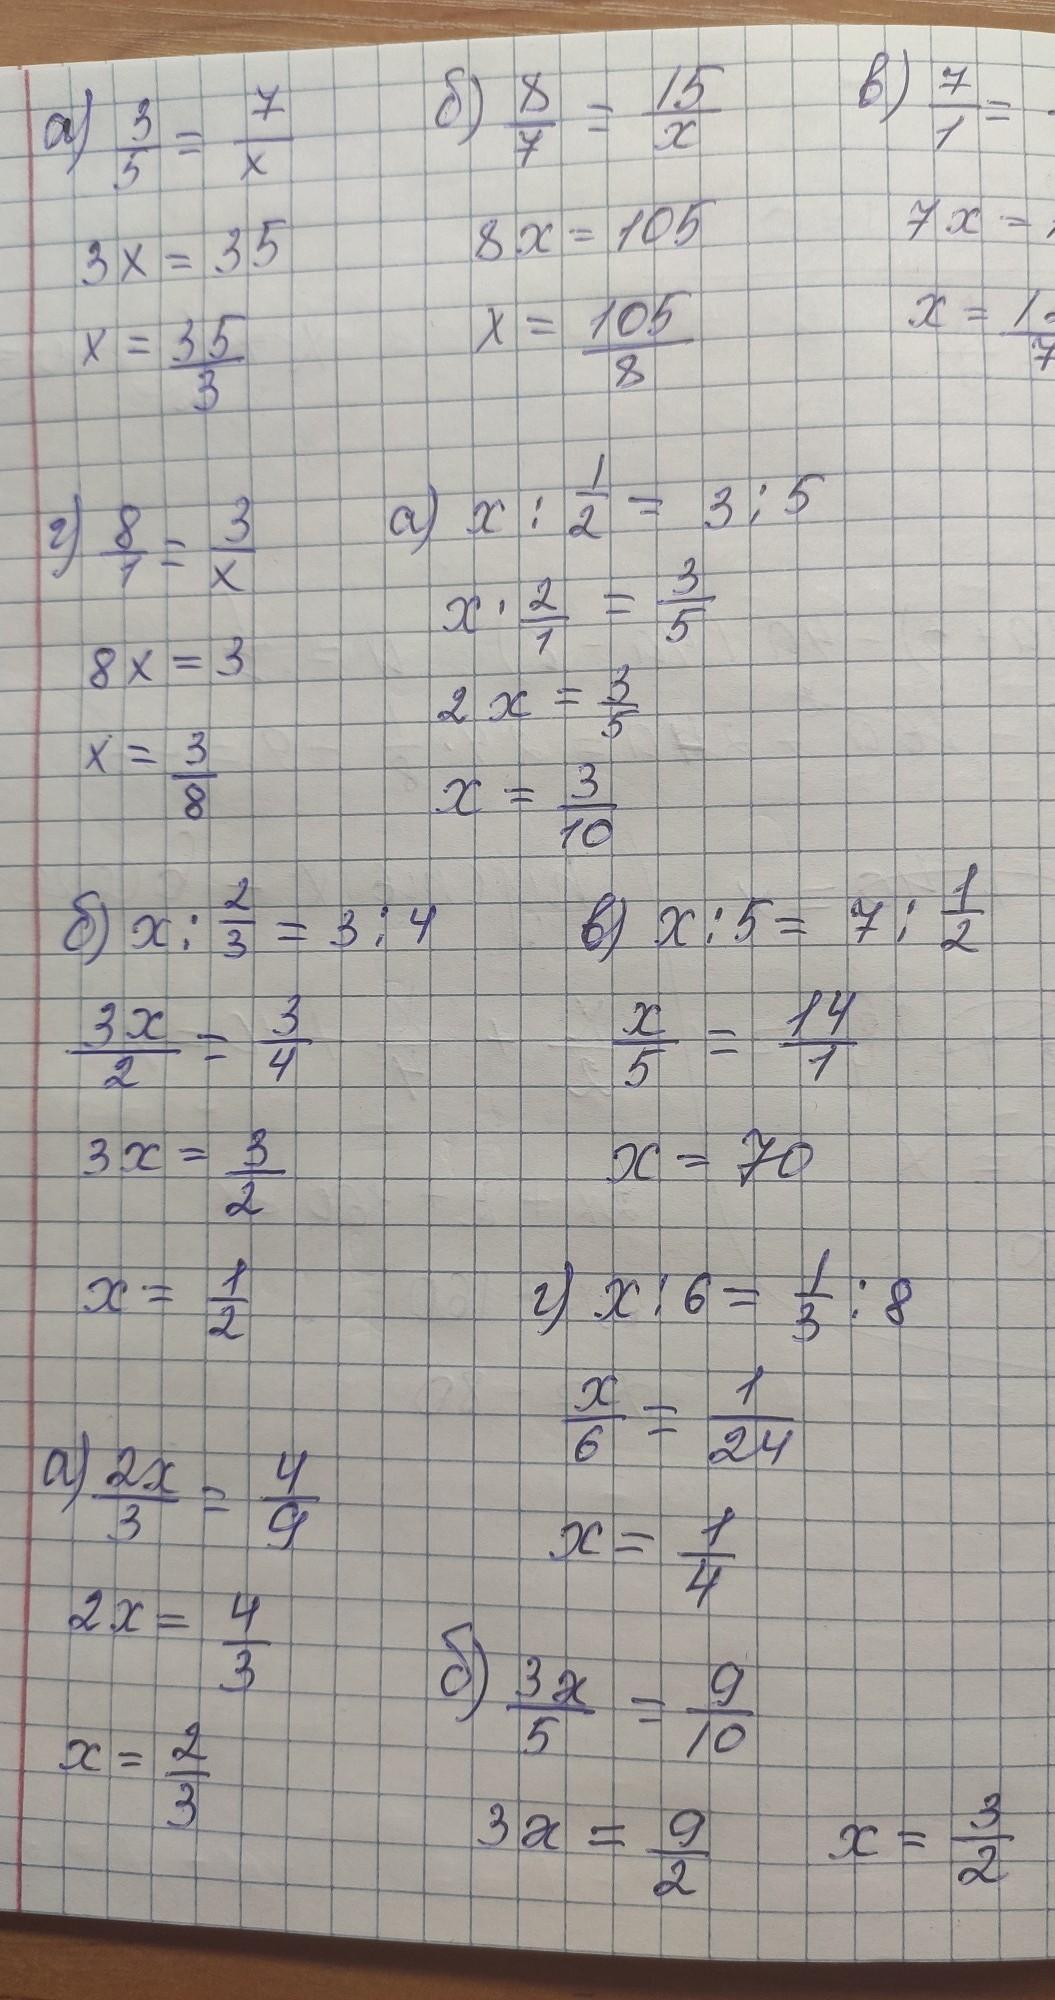 а) 3/5 = 7/x
3x = 35
x = 35/3
б) 8/7 = 15/x
8x = 105
x = 105/8
в) 7/1 =
7x =
x =
г) 8/1 = 3/x
8x = 3
x = 3/8
а) x : 1/2 = 3 : 5
x · 2/1 = 3/5
2x = 3/5
x = 3/10
б) x : 2/3 = 3 : 4
3x/2 = 3/4
3x = 3/2
x = 1/2
в) x : 5 = 7 : 1/2
x/5 = 14/1
x = 70
г) x : 6 = 1/3 : 8
x/6 = 1/24
x = 1/4
а) 2x/3 = 4/9
2x = 4/3
x = 2/3
б) 3x/5 = 9/10
3x = 9/2
x = 3/2